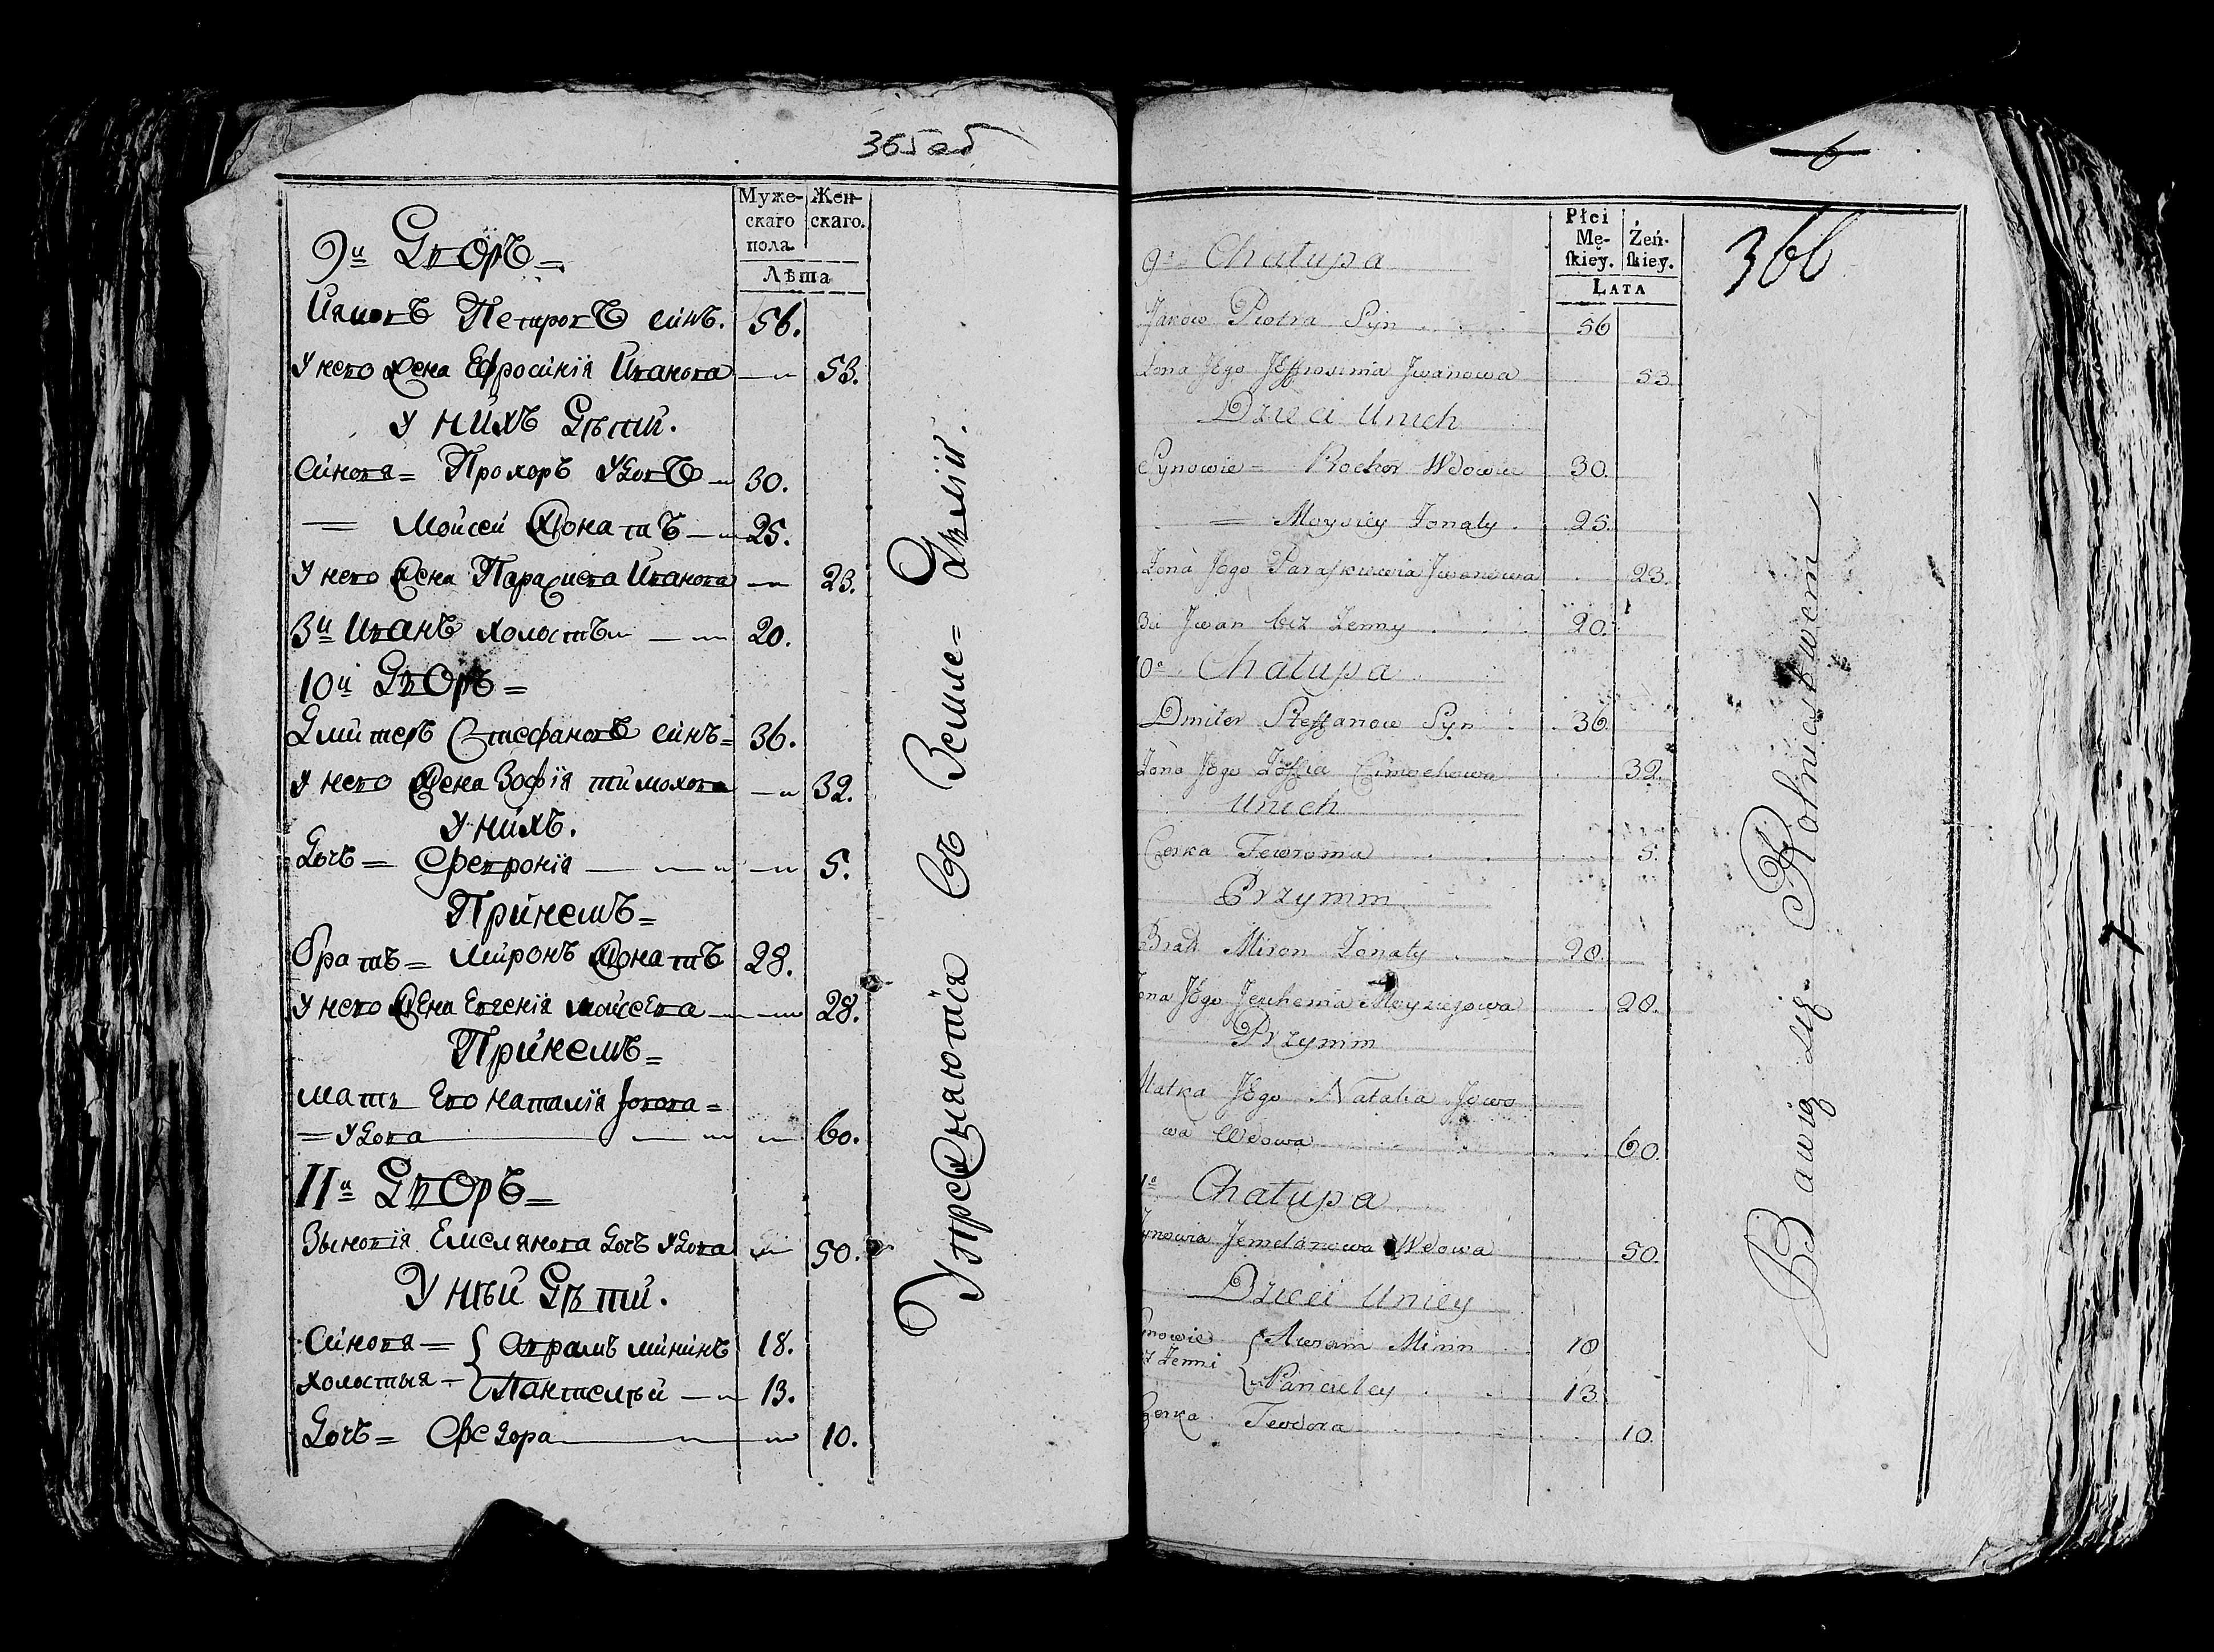 365 об
Муже-
скаго
пола
Жен-
скаго.
Лѣта
9й Дворъ =
Иаковъ Петровъ синъ. 56.
У него жена Ефросинія Иванова 53.
У нихъ Дѣти.
Синовя = Прохоръ Удовъ 30.
= Мойсей Жонатъ 25.
У него жена Параскева Иванова 23.
3й Иванъ холостъ 20.
10й Дворъ =
Дмитеръ Стефановъ синъ = 36.
У него жена Зофія тимохова 32.
У нихъ.
Дочъ = Февронія 5.
При немъ =
братъ = миронъ жонатъ 28.
У него жена Евгенія мойсеева 28.
При немъ =
мать Его Наталія Јовова =
= Удова 60.
11й Дворъ =
Зыновія Емелянова дочъ удова 50.
У нѣй Дѣти.
Синовя = Аврамъ мининъ 18.
холостыя = Пантелѣй 13.
Дочъ = Федора 10.
Упрежняются Съ Земле= Дѣлій.
6
366
Płci
Mę-
skiey.
Żeń-
skiey.
LATA
9a Chałupa
Jakow Piotra Syn 56
Żona JEgo JEffrosinia Jwanowa 53
Dzieci Unich
Synowie = Prochor Wdowiec 30.
= Moysiey Żonaty 25.
Żona JEgo Paraskiewia Jwanowa 23.
3ci Jwan bez Żenny 20.
10a Chałupa
Dmiter Steffanow Syn 36
Żona JEgo Zoffia Cimochowa 32.
Unich
Cerka Fewronia 5.
Przynim
Brat Miron Żonaty 28.
Żona JEgo Jeuhenia Moysiejowa 28.
Przynim
Matka JEgo Natalia Jowo
wa Wdowa 60.
Chałupa
Jemelanowa Wdowa 50.
Dzieci Uniey
Awram Minin 18
Żenni Pancieley 13.
Cerka Teodora 10.
Bawią się Rolnictwem